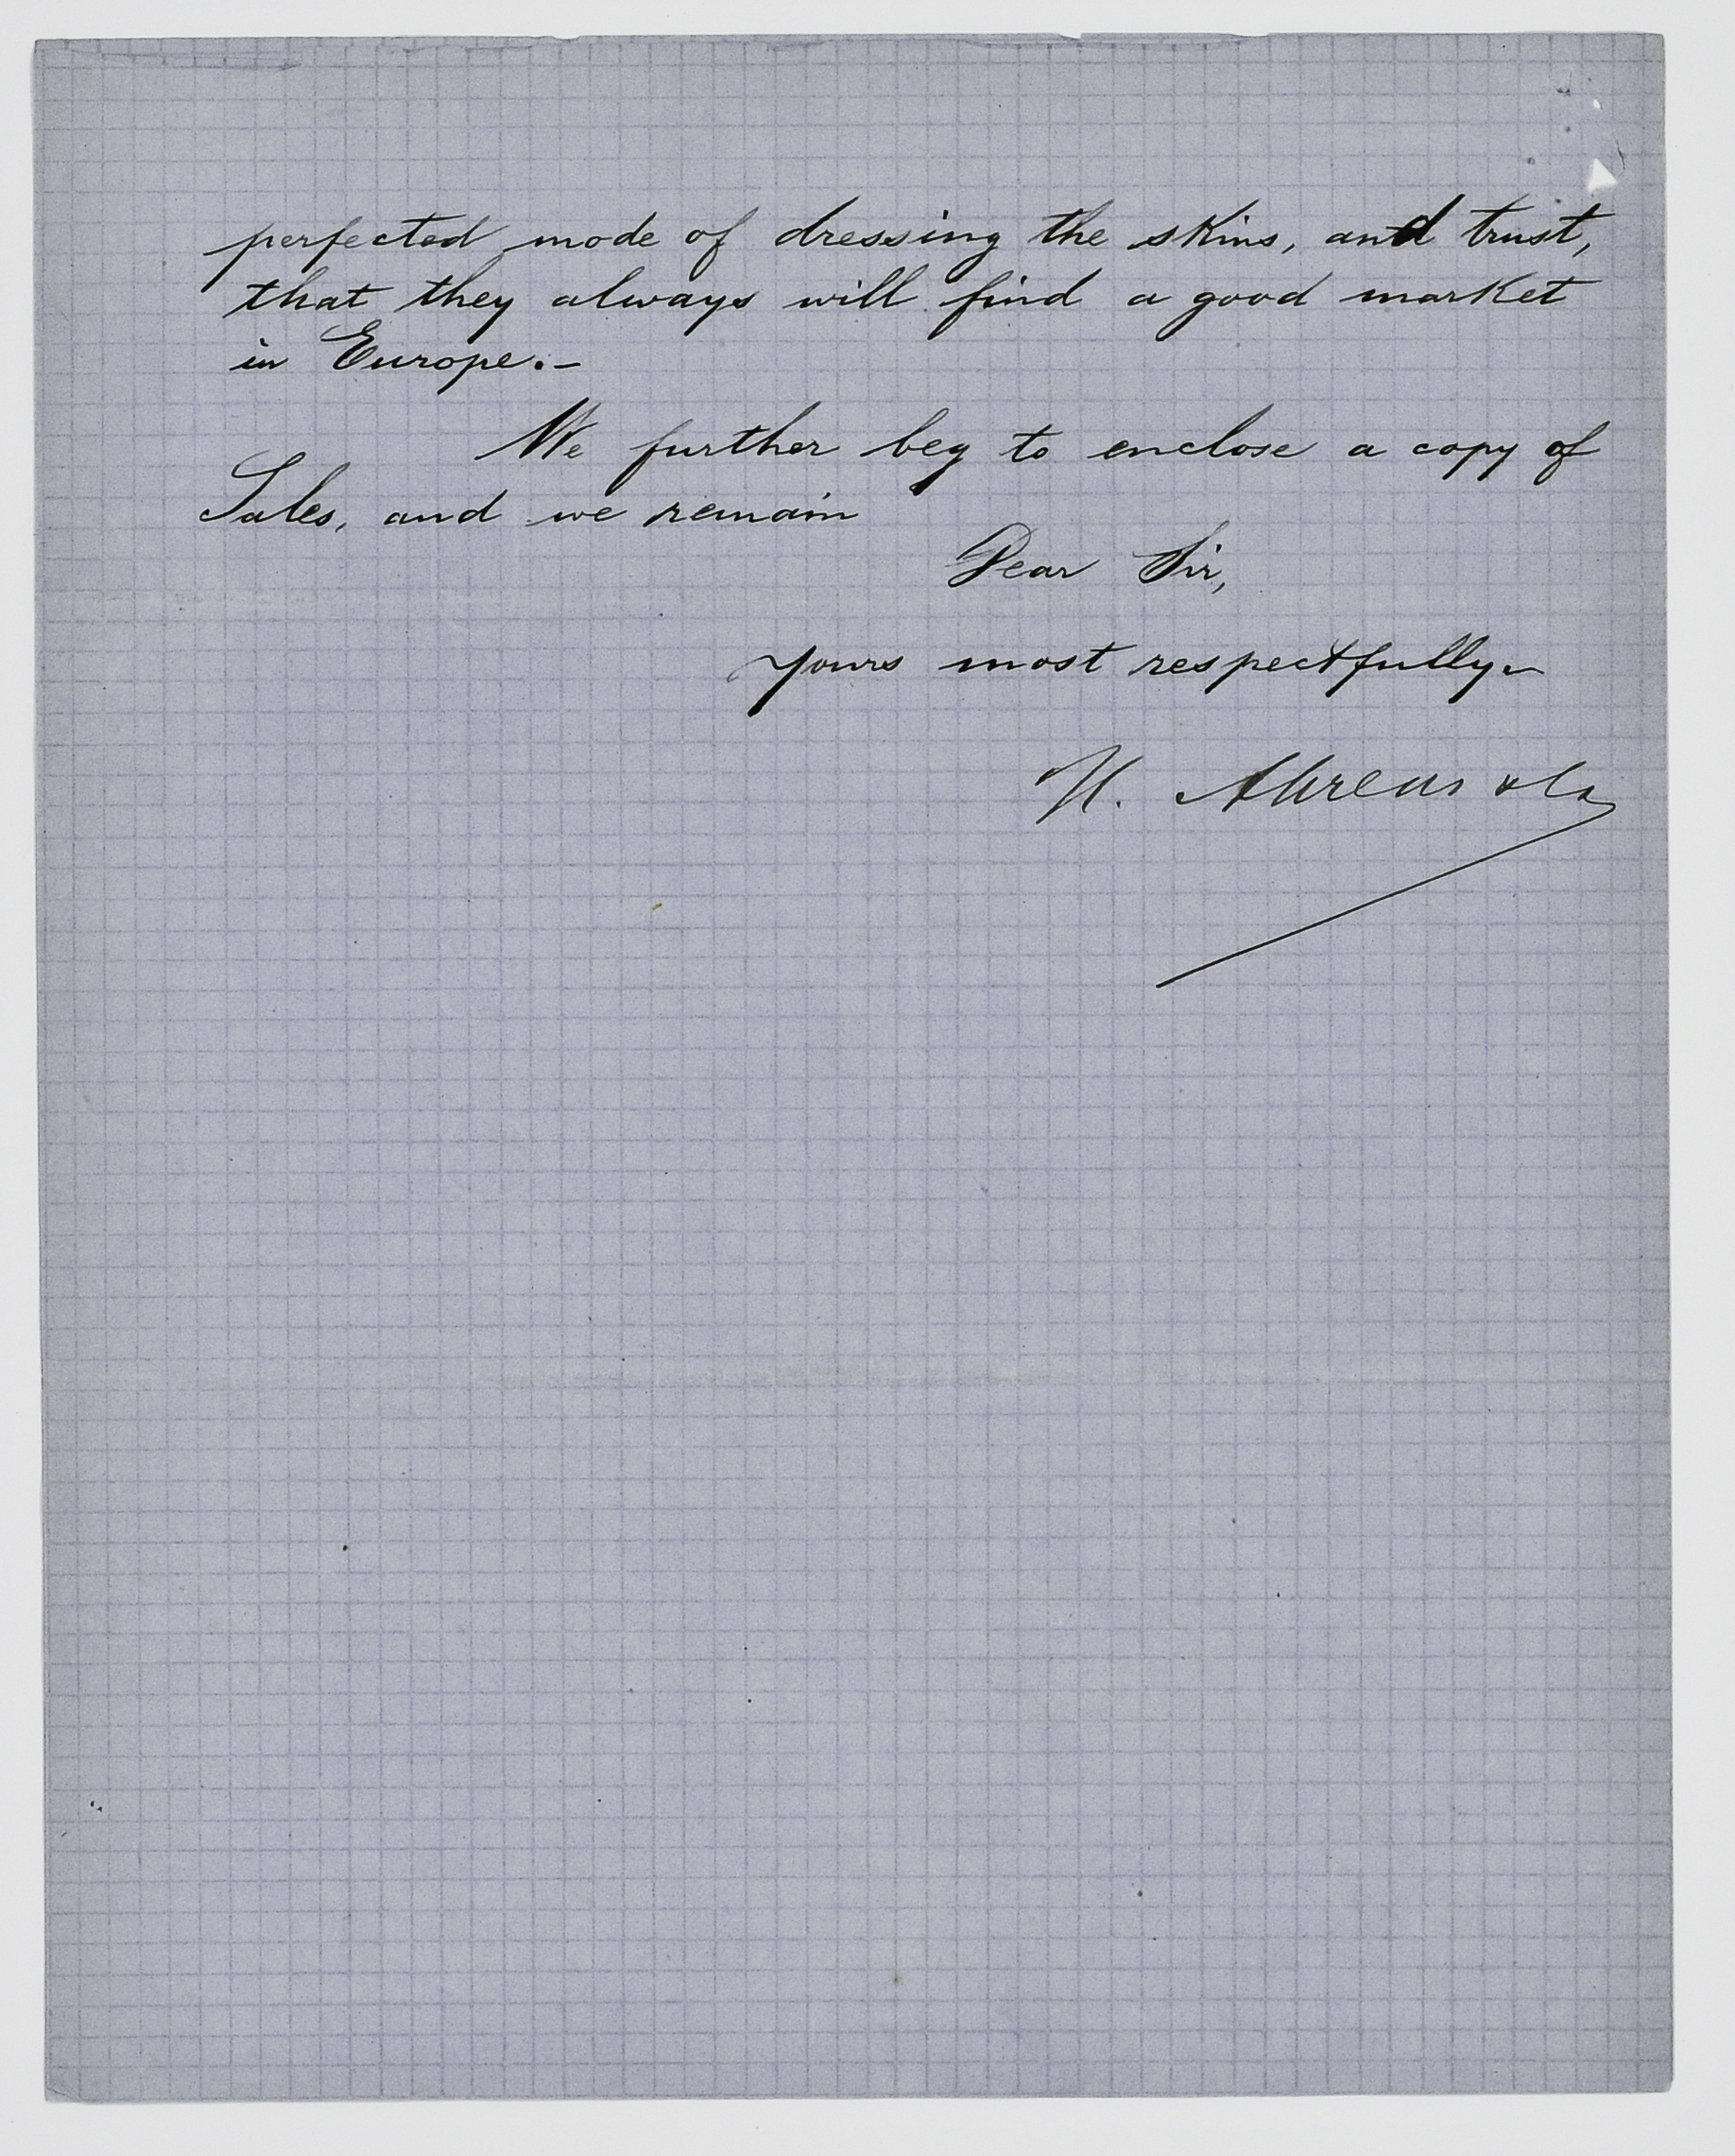 perfected mode of dressing the skins, and trust,
that they always will find a good market
in Europe.-
We further beg to enclose a copy of
Sales, and we remain
Dear Sir,
yours most respectfully
H. Ahrens & Co